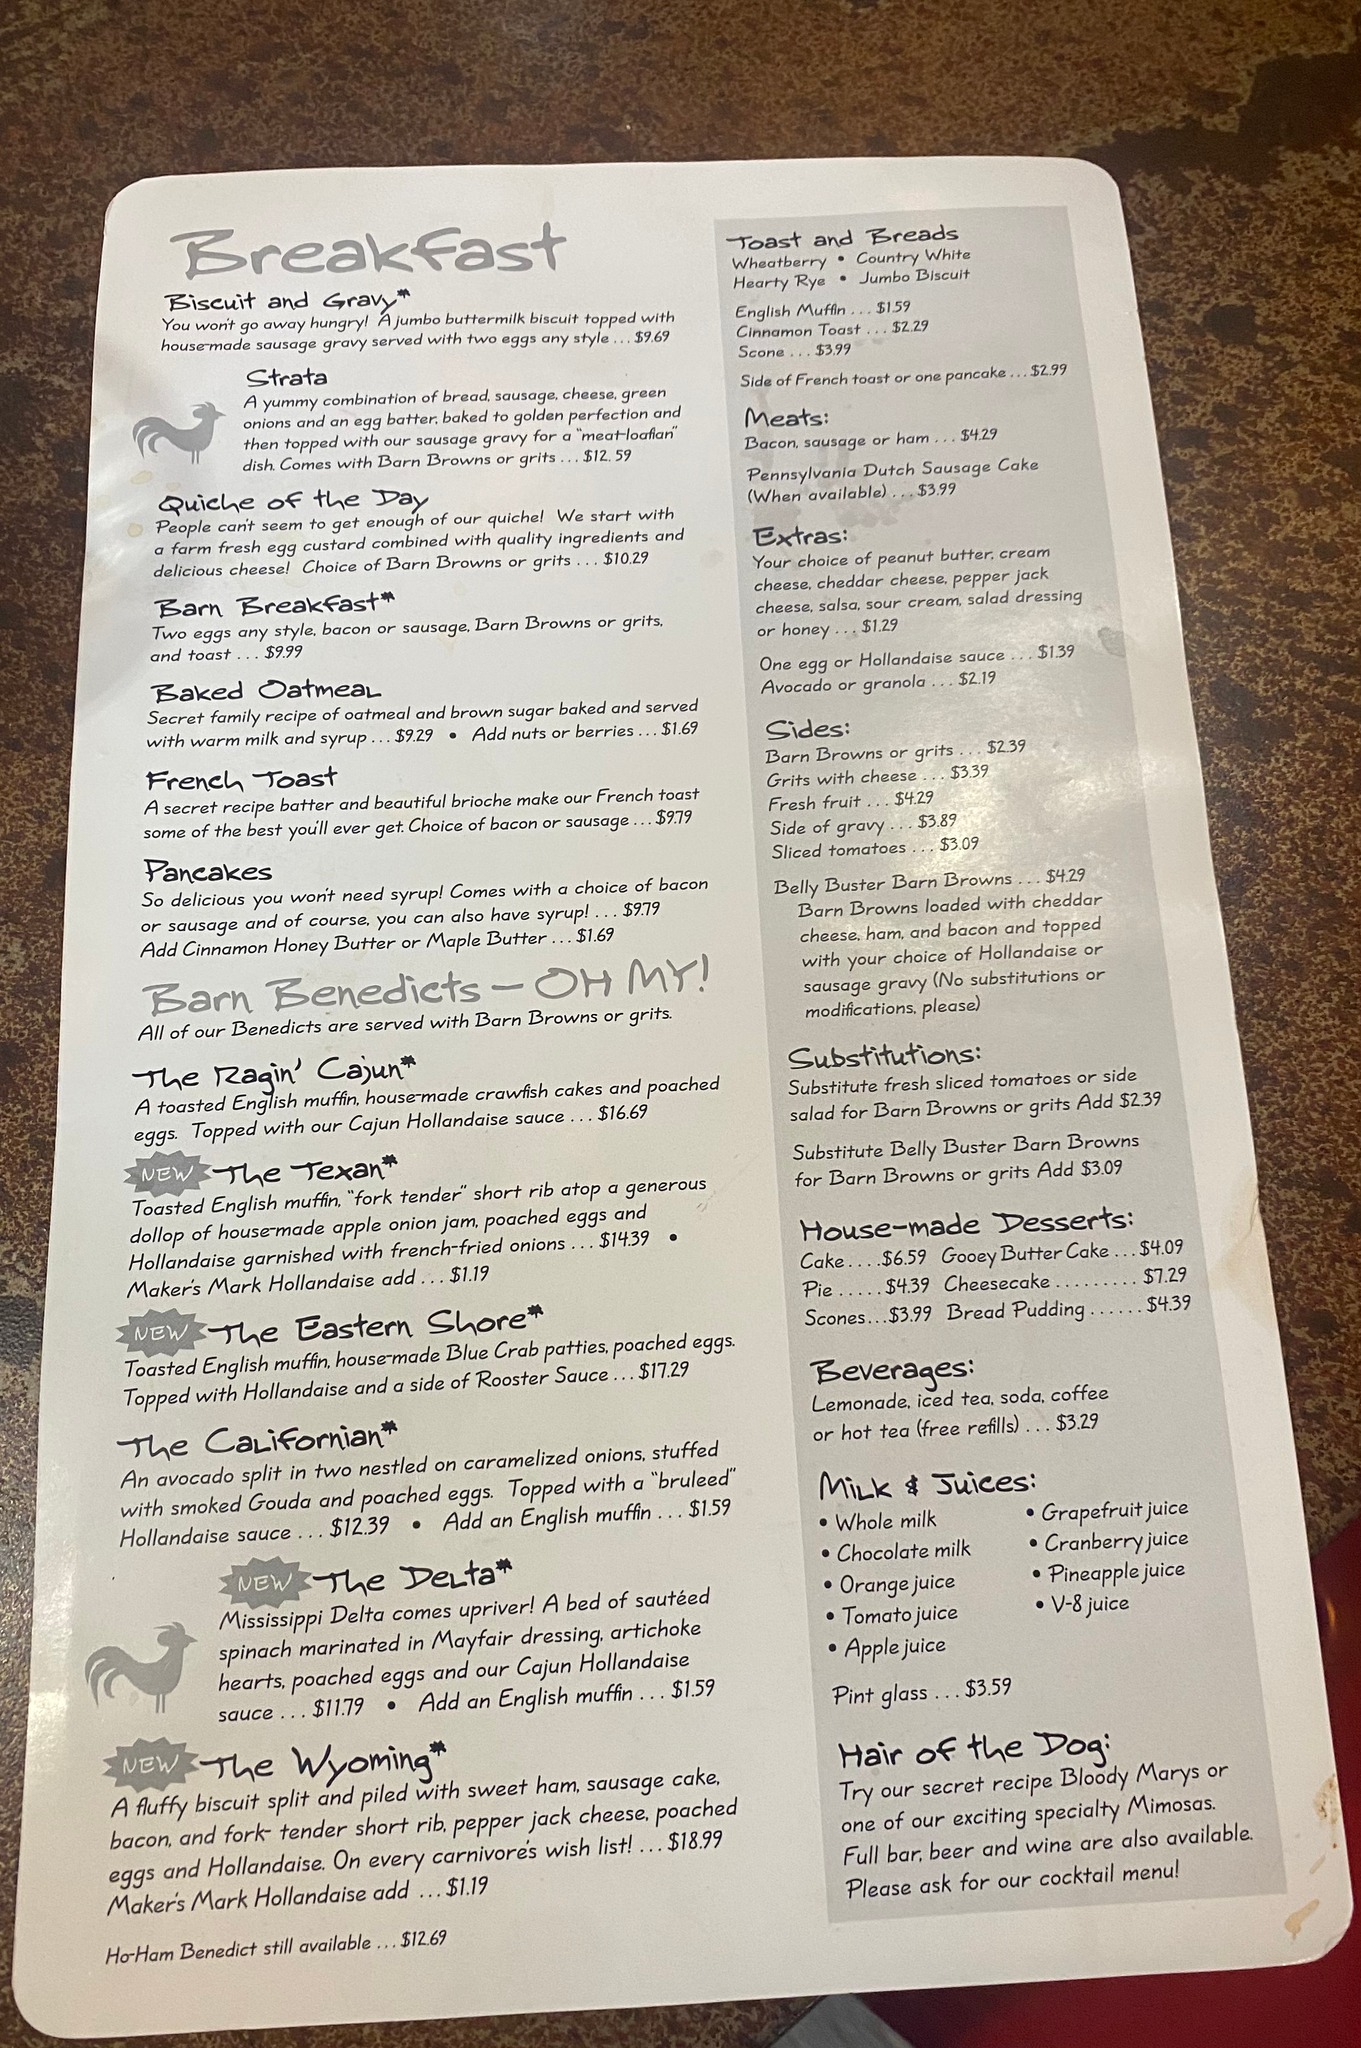 Breakfast
Biscuit and Gravy*
You won't go away hungry! A jumbo buttermilk biscuit topped with
house-made sausage gravy served with two eggs any style ... $9.69
Strata
A yummy combination of bread, sausage, cheese, green
onions and an egg batter, baked to golden perfection and
then topped with our sausage gravy for a "meat-loafian"
dish. Comes with Barn Browns or grits ... $12. 59
Quiche of the Day
People can't seem to get enough of our quiche! We start with
a farm fresh egg custard combined with quality ingredients and
delicious cheese! Choice of Barn Browns or grits ... $10.29
Barn Breakfast*
Two eggs any style, bacon or sausage, Barn Browns or grits,
and toast ... $9.99
Baked Oatmeal
Secret family recipe of oatmeal and brown sugar baked and served
with warm milk and syrup ... $9.29 • Add nuts or berries ... $1.69
French Toast
A secret recipe batter and beautiful brioche make our French toast
some of the best you'll ever get. Choice of bacon or sausage ... $9.79
Pancakes
So delicious you won't need syrup! Comes with a choice of bacon
or sausage and of course, you can also have syrup! ... $9.79
Add Cinnamon Honey Butter or Maple Butter ... $1.69
Barn Benedicts – OH MY!
All of our Benedicts are served with Barn Browns or grits.
The Ragin' Cajun*
A toasted English muffin, house-made crawfish cakes and poached
eggs. Topped with our Cajun Hollandaise sauce ... $16.69
NEW The Texan*
Toasted English muffin, "fork tender" short rib atop a generous
dollop of house-made apple onion jam, poached eggs and
Hollandaise garnished with french-fried onions ... $14.39 •
Maker's Mark Hollandaise add ... $1.19
NEW The Eastern Shore*
Toasted English muffin, house-made Blue Crab patties, poached eggs.
Topped with Hollandaise and a side of Rooster Sauce ... $17.29
The Californian*
An avocado split in two nestled on caramelized onions, stuffed
with smoked Gouda and poached eggs. Topped with a "bruleed"
Hollandaise sauce ... $12.39 • Add an English muffin ... $1.59
NEW The Delta*
Mississippi Delta comes upriver! A bed of sautéed
spinach marinated in Mayfair dressing, artichoke
hearts, poached eggs and our Cajun Hollandaise
sauce ... $11.79 • Add an English muffin ... $1.59
NEW The Wyoming*
A fluffy biscuit split and piled with sweet ham, sausage cake,
bacon, and fork- tender short rib, pepper jack cheese, poached
eggs and Hollandaise. On every carnivore's wish list! ... $18.99
Maker's Mark Hollandaise add ... $1.19
Ho-Ham Benedict still available ... $12.69
Toast and Breads
Wheatberry • Country White
Hearty Rye • Jumbo Biscuit
English Muffin ... $1.59
Cinnamon Toast ... $2.29
Scone ... $3.99
Side of French toast or one pancake ... $2.99
Meats:
Bacon, sausage or ham ... $4.29
Pennsylvania Dutch Sausage Cake
(When available) ... $3.99
Extras:
Your choice of peanut butter, cream
cheese, cheddar cheese, pepper jack
cheese, salsa, sour cream, salad dressing
or honey ... $1.29
One egg or Hollandaise sauce ... $1.39
Avocado or granola ... $2.19
Sides:
Barn Browns or grits ... $2.39
Grits with cheese ... $3.39
Fresh fruit ... $4.29
Side of gravy ... $3.89
Sliced tomatoes ... $3.09
Belly Buster Barn Browns ... $4.29
Barn Browns loaded with cheddar
cheese, ham, and bacon and topped
with your choice of Hollandaise or
sausage gravy (No substitutions or
modifications, please)
Substitutions:
Substitute fresh sliced tomatoes or side
salad for Barn Browns or grits Add $2.39
Substitute Belly Buster Barn Browns
for Barn Browns or grits Add $3.09
House-made Desserts:
Cake....$6.59 Gooey Butter Cake ... $4.09
Pie .....$4.39 Cheesecake ......... $7.29
Scones...$3.99 Bread Pudding ...... $4.39
Beverages:
Lemonade, iced tea, soda, coffee
or hot tea (free refills) ... $3.29
Milk & Juices:
• Whole milk
• Chocolate milk
• Orange juice
• Tomato juice
• Apple juice
• Grapefruit juice
• Cranberry juice
• Pineapple juice
• V-8 juice
Pint glass ... $3.59
Hair of the Dog:
Try our secret recipe Bloody Marys or
one of our exciting specialty Mimosas.
Full bar, beer and wine are also available.
Please ask for our cocktail menu!